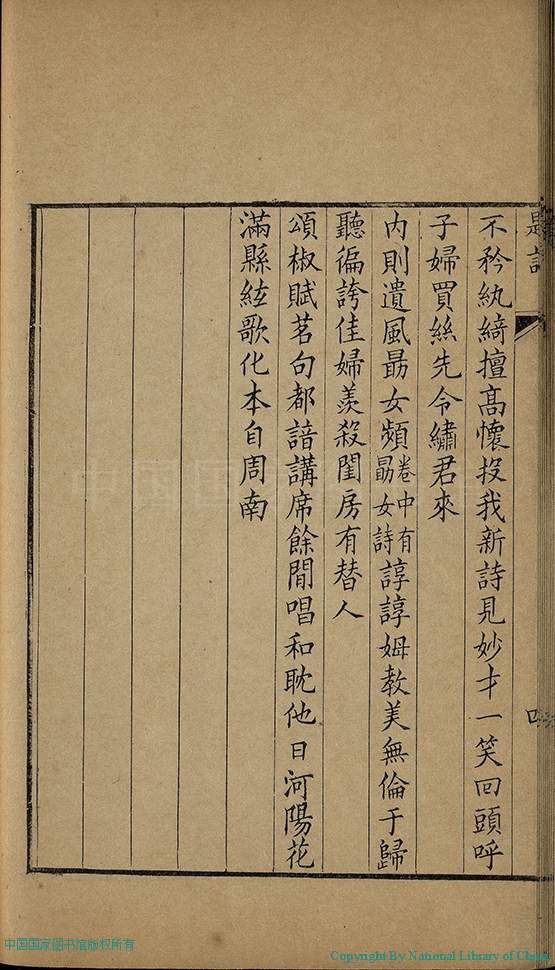 不矜紈綺擅高懷投我新詩見妙才一笑回頭呼
子婦買絲先令繡君來
內則遺風勗女頻卷中有勗女詩諄諄姆教美無倫于歸
聽徧誇佳婦羨殺閨房有替人
頌椒賦茗句都諳講席餘閒唱和耽他日河陽花
滿縣絃歌化本自周南
中国国家图书馆版权所有
Copyright By National Library of China